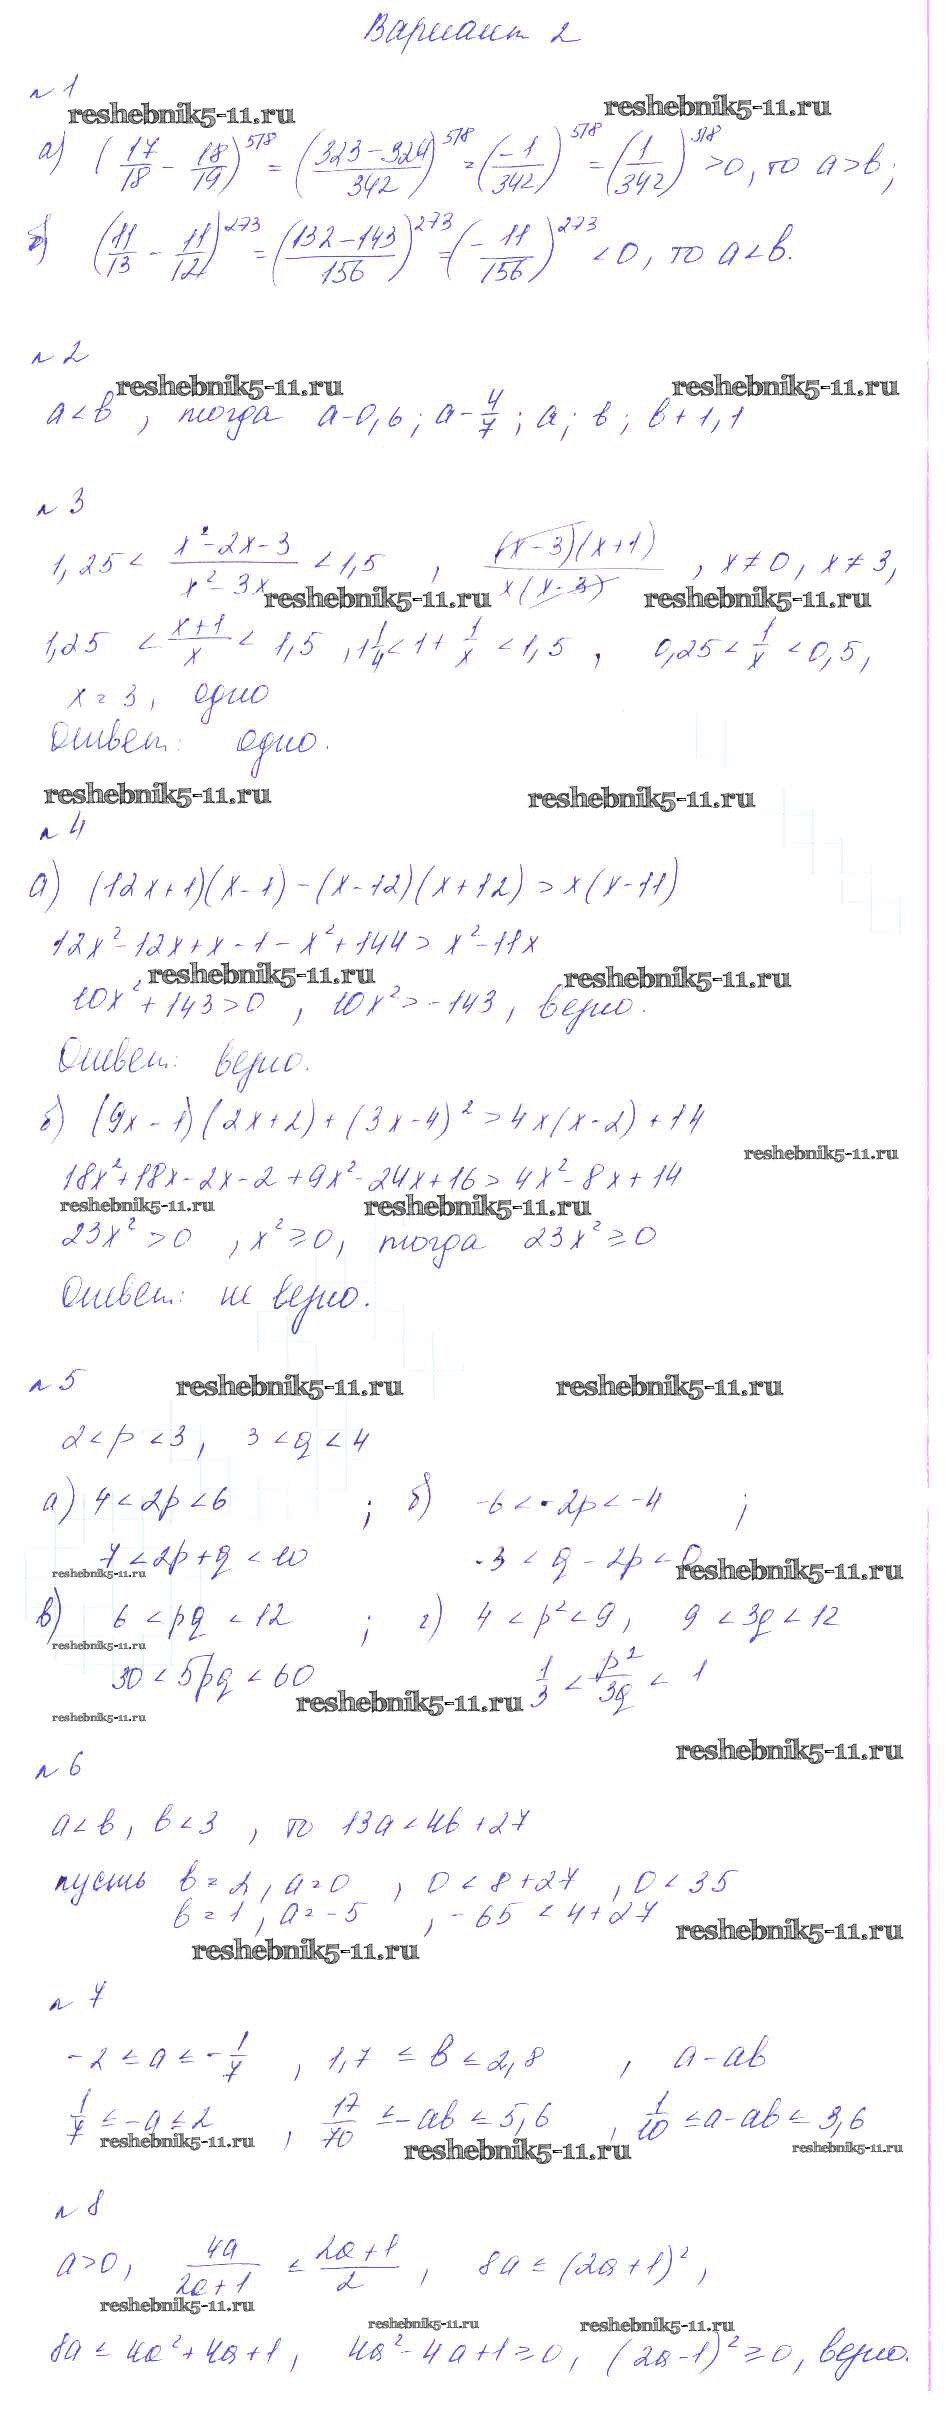 Вариант 2
n 1
reshebnik5-11.ru reshebnik5-11.ru
а) (17/18 - 18/19)^578 = ((323-324)/342)^578 = (-1/342)^578 = (1/342)^578 > 0, то a > b;
б) (11/13 - 11/12)^273 = ((132-143)/156)^273 = (-11/156)^273 < 0, то a < b.
n 2
reshebnik5-11.ru reshebnik5-11.ru
a < b, тогда a-0,6; a-4/7; a; b; b+1,1
n 3
1,25 < (x²-2x-3)/(x²-3x) < 1,5, ((x-3)(x+1))/(x(x-3)), x ≠ 0, x ≠ 3,
reshebnik5-11.ru reshebnik5-11.ru
1,25 < (x+1)/x < 1,5, 1 1/4 < 1 + 1/x < 1,5, 0,25 < 1/x < 0,5,
x = 3, одно
Ответ: одно.
reshebnik5-11.ru reshebnik5-11.ru
n 4
а) (12x+1)(x-1)-(x-12)(x+12) > x(x-11)
12x²-12x+x-1-x²+144 > x²-11x
reshebnik5-11.ru reshebnik5-11.ru
10x²+143 > 0, 10x² > -143, верно.
Ответ: верно.
б) (9x-1)(2x+2)+(3x-4)² > 4x(x-2)+14
reshebnik5-11.ru
18x²+18x-2x-2+9x²-24x+16 > 4x²-8x+14
reshebnik5-11.ru reshebnik5-11.ru
23x² > 0, x² ≥ 0, тогда 23x² ≥ 0
Ответ: не верно.
n 5
reshebnik5-11.ru reshebnik5-11.ru
2 < p < 3, 3 < q < 4
а) 4 < 2p < 6; б) -6 < -2p < -4;
7 < 2p+q < 10 -3 < q-2p < 0
reshebnik5-11.ru reshebnik5-11.ru
в) 6 < pq < 12; г) 4 < p² < 9, 9 < 3q < 12
reshebnik5-11.ru
30 < 5pq < 60 1/3 < p²/3q < 1
reshebnik5-11.ru
reshebnik5-11.ru
reshebnik5-11.ru
n 6
a < b, b < 3, то 13a < 4b+27
пусть b = 2, a = 0, 0 < 8+27, 0 < 35
b = 1, a = -5, -65 < 4+27
reshebnik5-11.ru reshebnik5-11.ru
n 7
-2 ≤ a ≤ -1/7, 1,7 ≤ b ≤ 2,8, a-ab
1/7 ≤ -a ≤ 2, 17/70 ≤ -ab ≤ 5,6, 1/10 ≤ a-ab ≤ 3,6
reshebnik5-11.ru reshebnik5-11.ru reshebnik5-11.ru
n 8
a > 0, 4a/(2a+1) ≤ (2a+1)/2, 8a ≤ (2a+1)²,
reshebnik5-11.ru
reshebnik5-11.ru reshebnik5-11.ru
8a ≤ 4a²+4a+1, 4a²-4a+1 ≥ 0, (2a-1)² ≥ 0, верно.